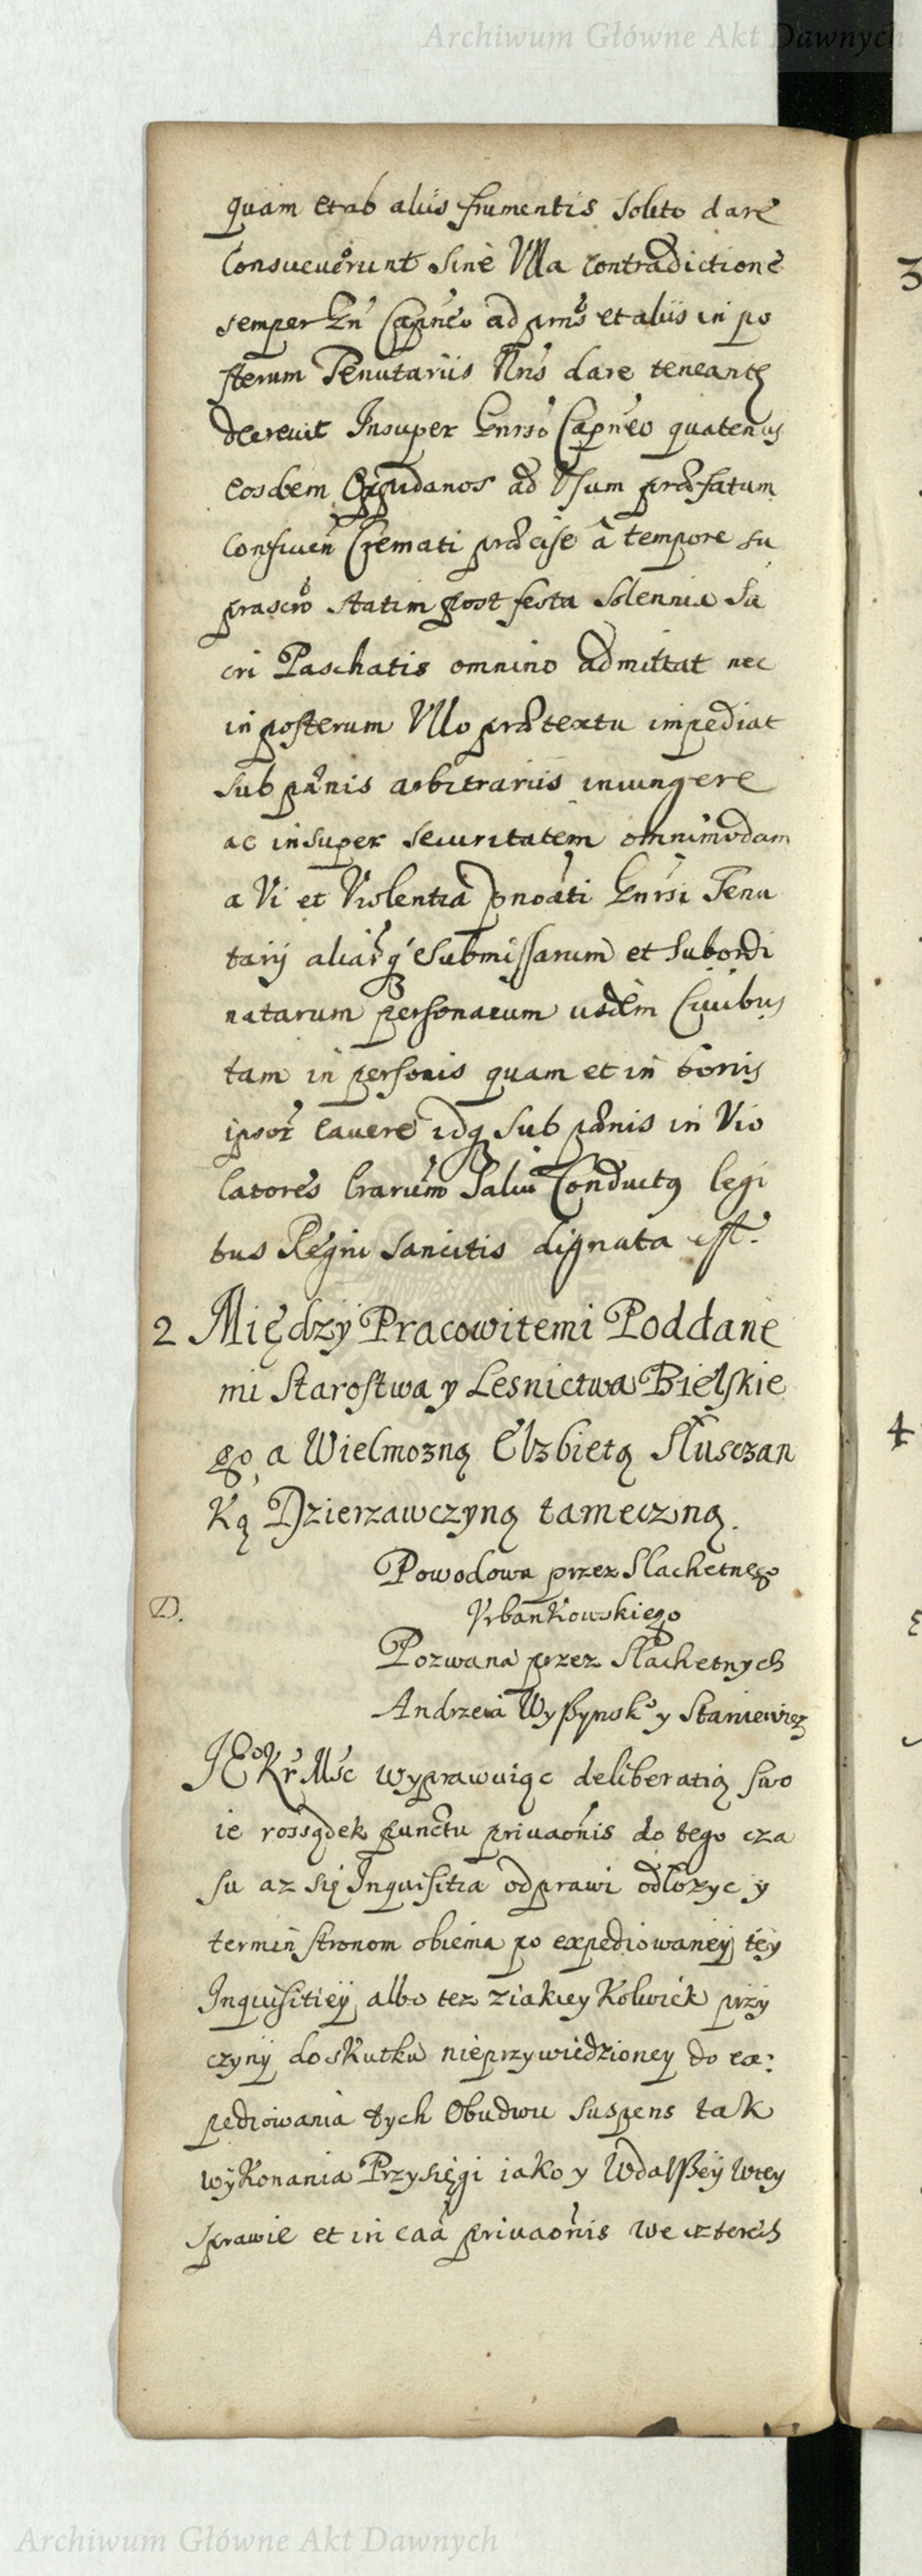 Archiwum Główne Akt Dawnych
quam et ab aliis frumentis solito dare
Consueuerunt Sine Ulla contradictione
semper Gn Capneo ad pms et aliis in po
sterum Tenutariis Nris dare teneantq
decreuit Insuper Gnrso Capneo quatenus
eosdem Oppidanos ad Usum præfatum
Confluen Cremati præcise â tempore su
prascro statim post festa Solennia Sa
cri Paschatis omnino admittat nec
in posterum Ullo prætextu impediat
sub pœnis arbitrariis iniungere
ac insuper securitatem omnimodam
a Vi et Violentia pnoati Gnrsi Tenu
tarij aliarq Submissarum et Subordi
natarum personarum iisdem Ciuibus
tam in personis quam et in bonis
ipsor cauere idq Sub pœnis in Vio
latores lrarum Salui Conductq legi
bus Regni Sancitis dignata est.
2 Między Pracowitemi Poddane
mi Starostwa y Lesnictwa Bielskie
go, a Wielmozną Elzbietą Słusczan
Ką Dzierzawczyną tameczną.
Powodowa przez Slachetnego
D.
Vrbankowskiego
Pozwana przez Slachetnych
Andrzeia Wyszynsko y Staniewicz
JEo Kr Msc wyprawuiąc deliberatią swo
ie rossądek punctu priuaonis do tego cza
su az się Inquisitia odprawi odłozyc y
termin stronom obiema po expediowaney tey
Inquisitiey albo tez ziakiey Kolwiek przy
czyny do skutku nieprzywiedzioney do ex:
pediowania tych Obudwu suspens tak
wykonania Przysięgi iako y Wdalszey wtey
Sprawie et in caa priuaonis we czterech
3
4
Archiwum Główne Akt Dawnych